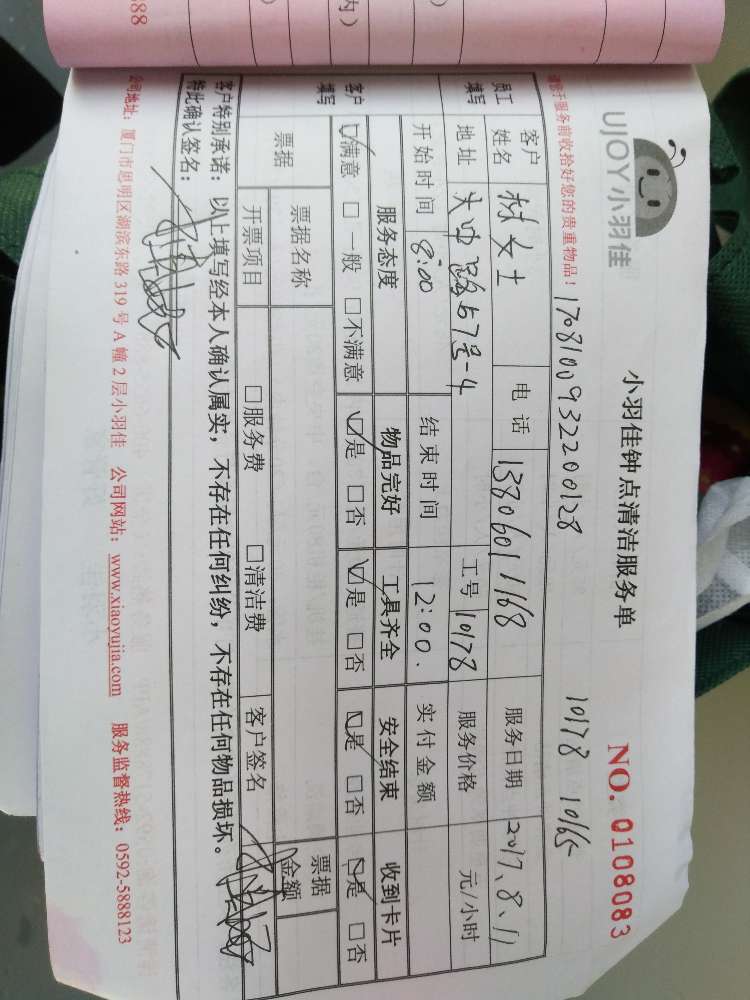 UJOY小羽佳
小羽佳钟点清洁服务单
NO. 0108083
请您于服务前收拾好您的贵重物品！
1708100932200128
10178 10165
员工填写
客户姓名 林女士 电话 13806011168 服务日期 2017.8.11
地址 57号-4 工号 10178 服务价格 元/小时
开始时间 8:00 结束时间 12:00. 实付金额
客户填写
服务态度 物品完好 工具齐全 安全结束 收到卡片
☑满意 □一般 □不满意 ☑是 □否 ☑是 □否 ☑是 □否 ☑是 □否
票据
票据名称
票据金额
开票项目 □服务费 □清洁费 客户签名
客户特别承诺：以上填写经本人确认属实，不存在任何纠纷，不存在任何物品损坏。
特此确认签名：
公司地址：厦门市思明区湖滨东路 319 号 A 幢 2 层小羽佳 公司网站：www.xiaoyujia.com 服务监督热线：0592-5888123
内）